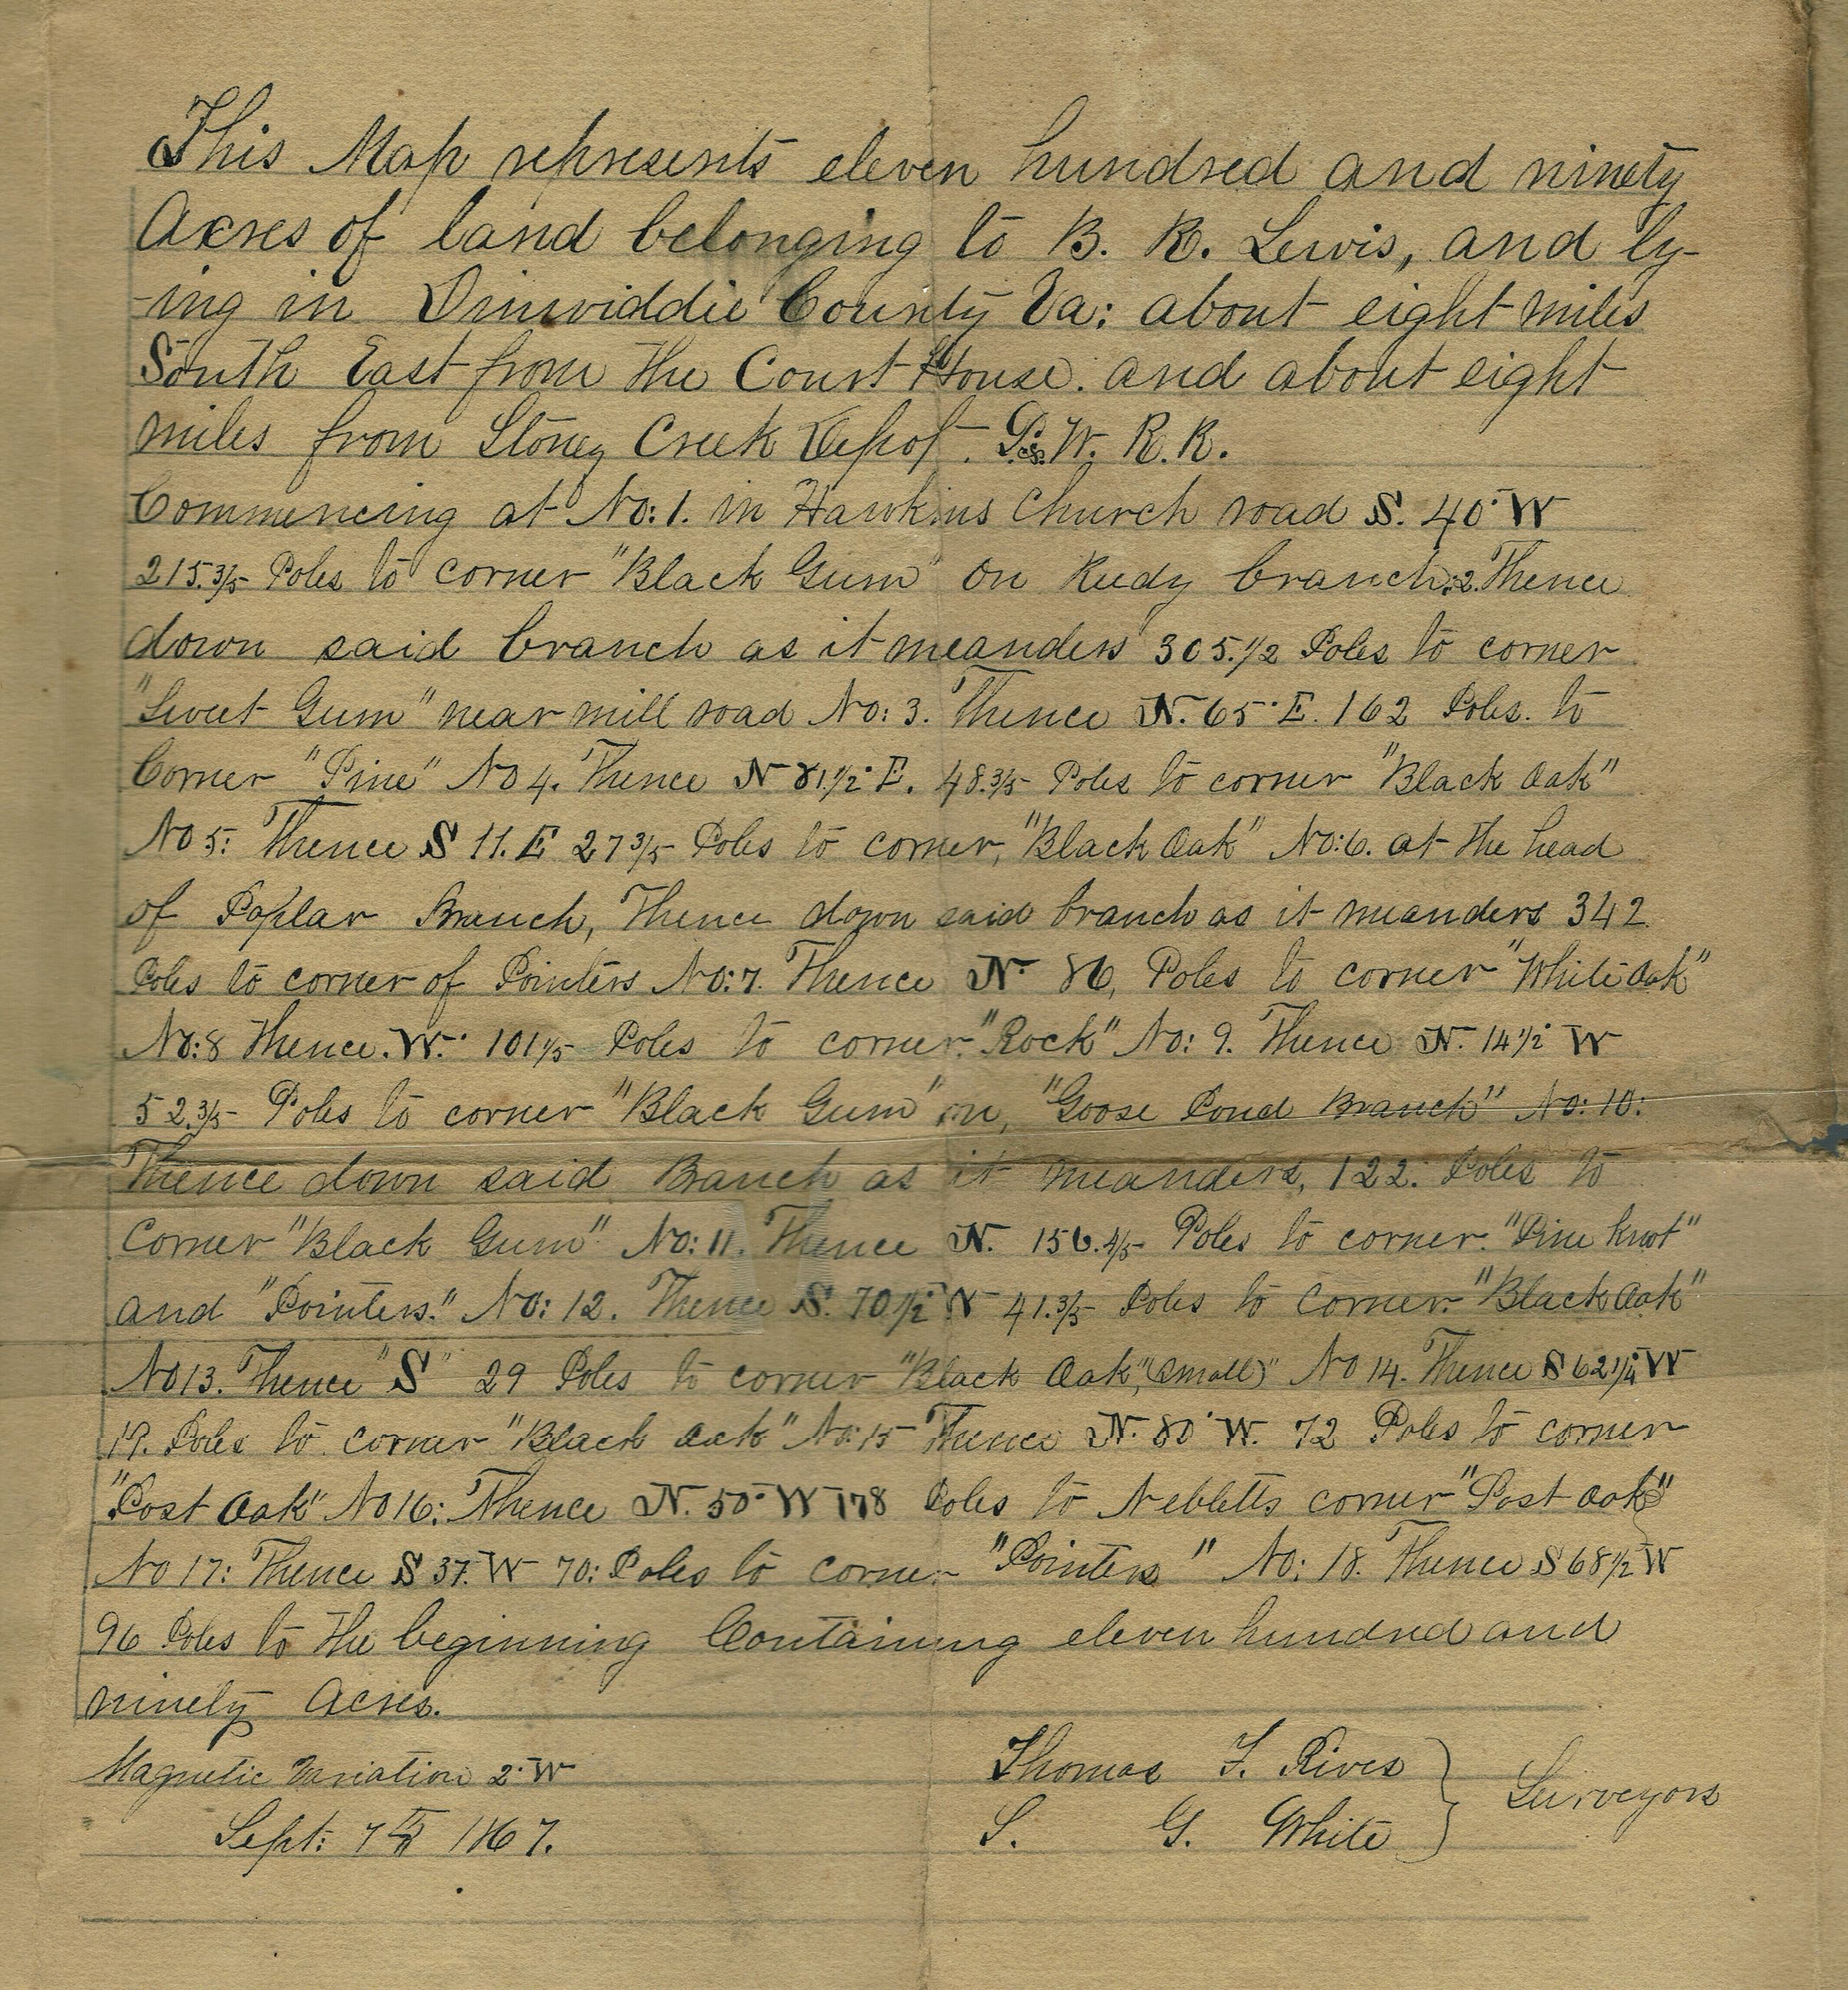 This Map represents eleven hundred and ninety
Acres of land belonging to B. R. Lewis, and ly-
-ing in Dinwiddie County Va: about eight miles
South East from the Court House. and about eight
miles from Stoney Creek Depot. P. & W. R. R.
Commencing at No: 1. in Hawkins Church road S. 40° W
215.3/5 Poles to corner "Black Gum" on Reedy branch: 2. Thence
down said branch as it meanders 305.1/2 Poles to corner
"Sweet Gum" near mill road No: 3. Thence N. 65° E. 162 Poles. to
Corner "Pine" No 4. Thence N 81.1/2° E. 48.3/5 Poles to corner "Black Oak"
No 5: Thence S 11. E 27 3/5 Poles to corner, "Black Oak" No: 6. at the head
of Poplar Branch, Thence down said branch as it meanders 342
Poles to corner of Pointers No: 7. Thence N. 86, Poles to corner "White Oak"
No: 8 Thence. W. 101 1/5 Poles to corner. "Rock" No: 9. Thence N. 14 1/2° W
52.3/5 Poles to corner "Black Gum" on, "Goose Pond Branch" No: 10:
Thence down said Branch as it meanders, 122. Poles to
Corner "Black Gum" No: 11. Thence N. 156.4/5 Poles to corner. "Pine knot"
and "Pointers." No: 12. Thence S. 70 1/2° W 41.3/5 Poles to Corner. "Black Oak"
No 13. Thence "S" 29 Poles to corner "Black Oak", (small)" No 14. Thence S 62 1/4° W
19. Poles to corner "Black Oak" No: 15 Thence N. 80° W. 72 Poles to corner
"Post Oak" No 16: Thence N. 50° W 178 Poles to Nebletts corner "Post Oak"
No 17: Thence S 37. W 70: Poles to corner "Pointers" No: 18. Thence S 68 1/2 W
96 Poles to the beginning Containing eleven hundred and
ninety Acres.
Magnetic Variation 2° W
Sept: 7th 1867.
Thomas F. Rives
S. G. White
Surveyors